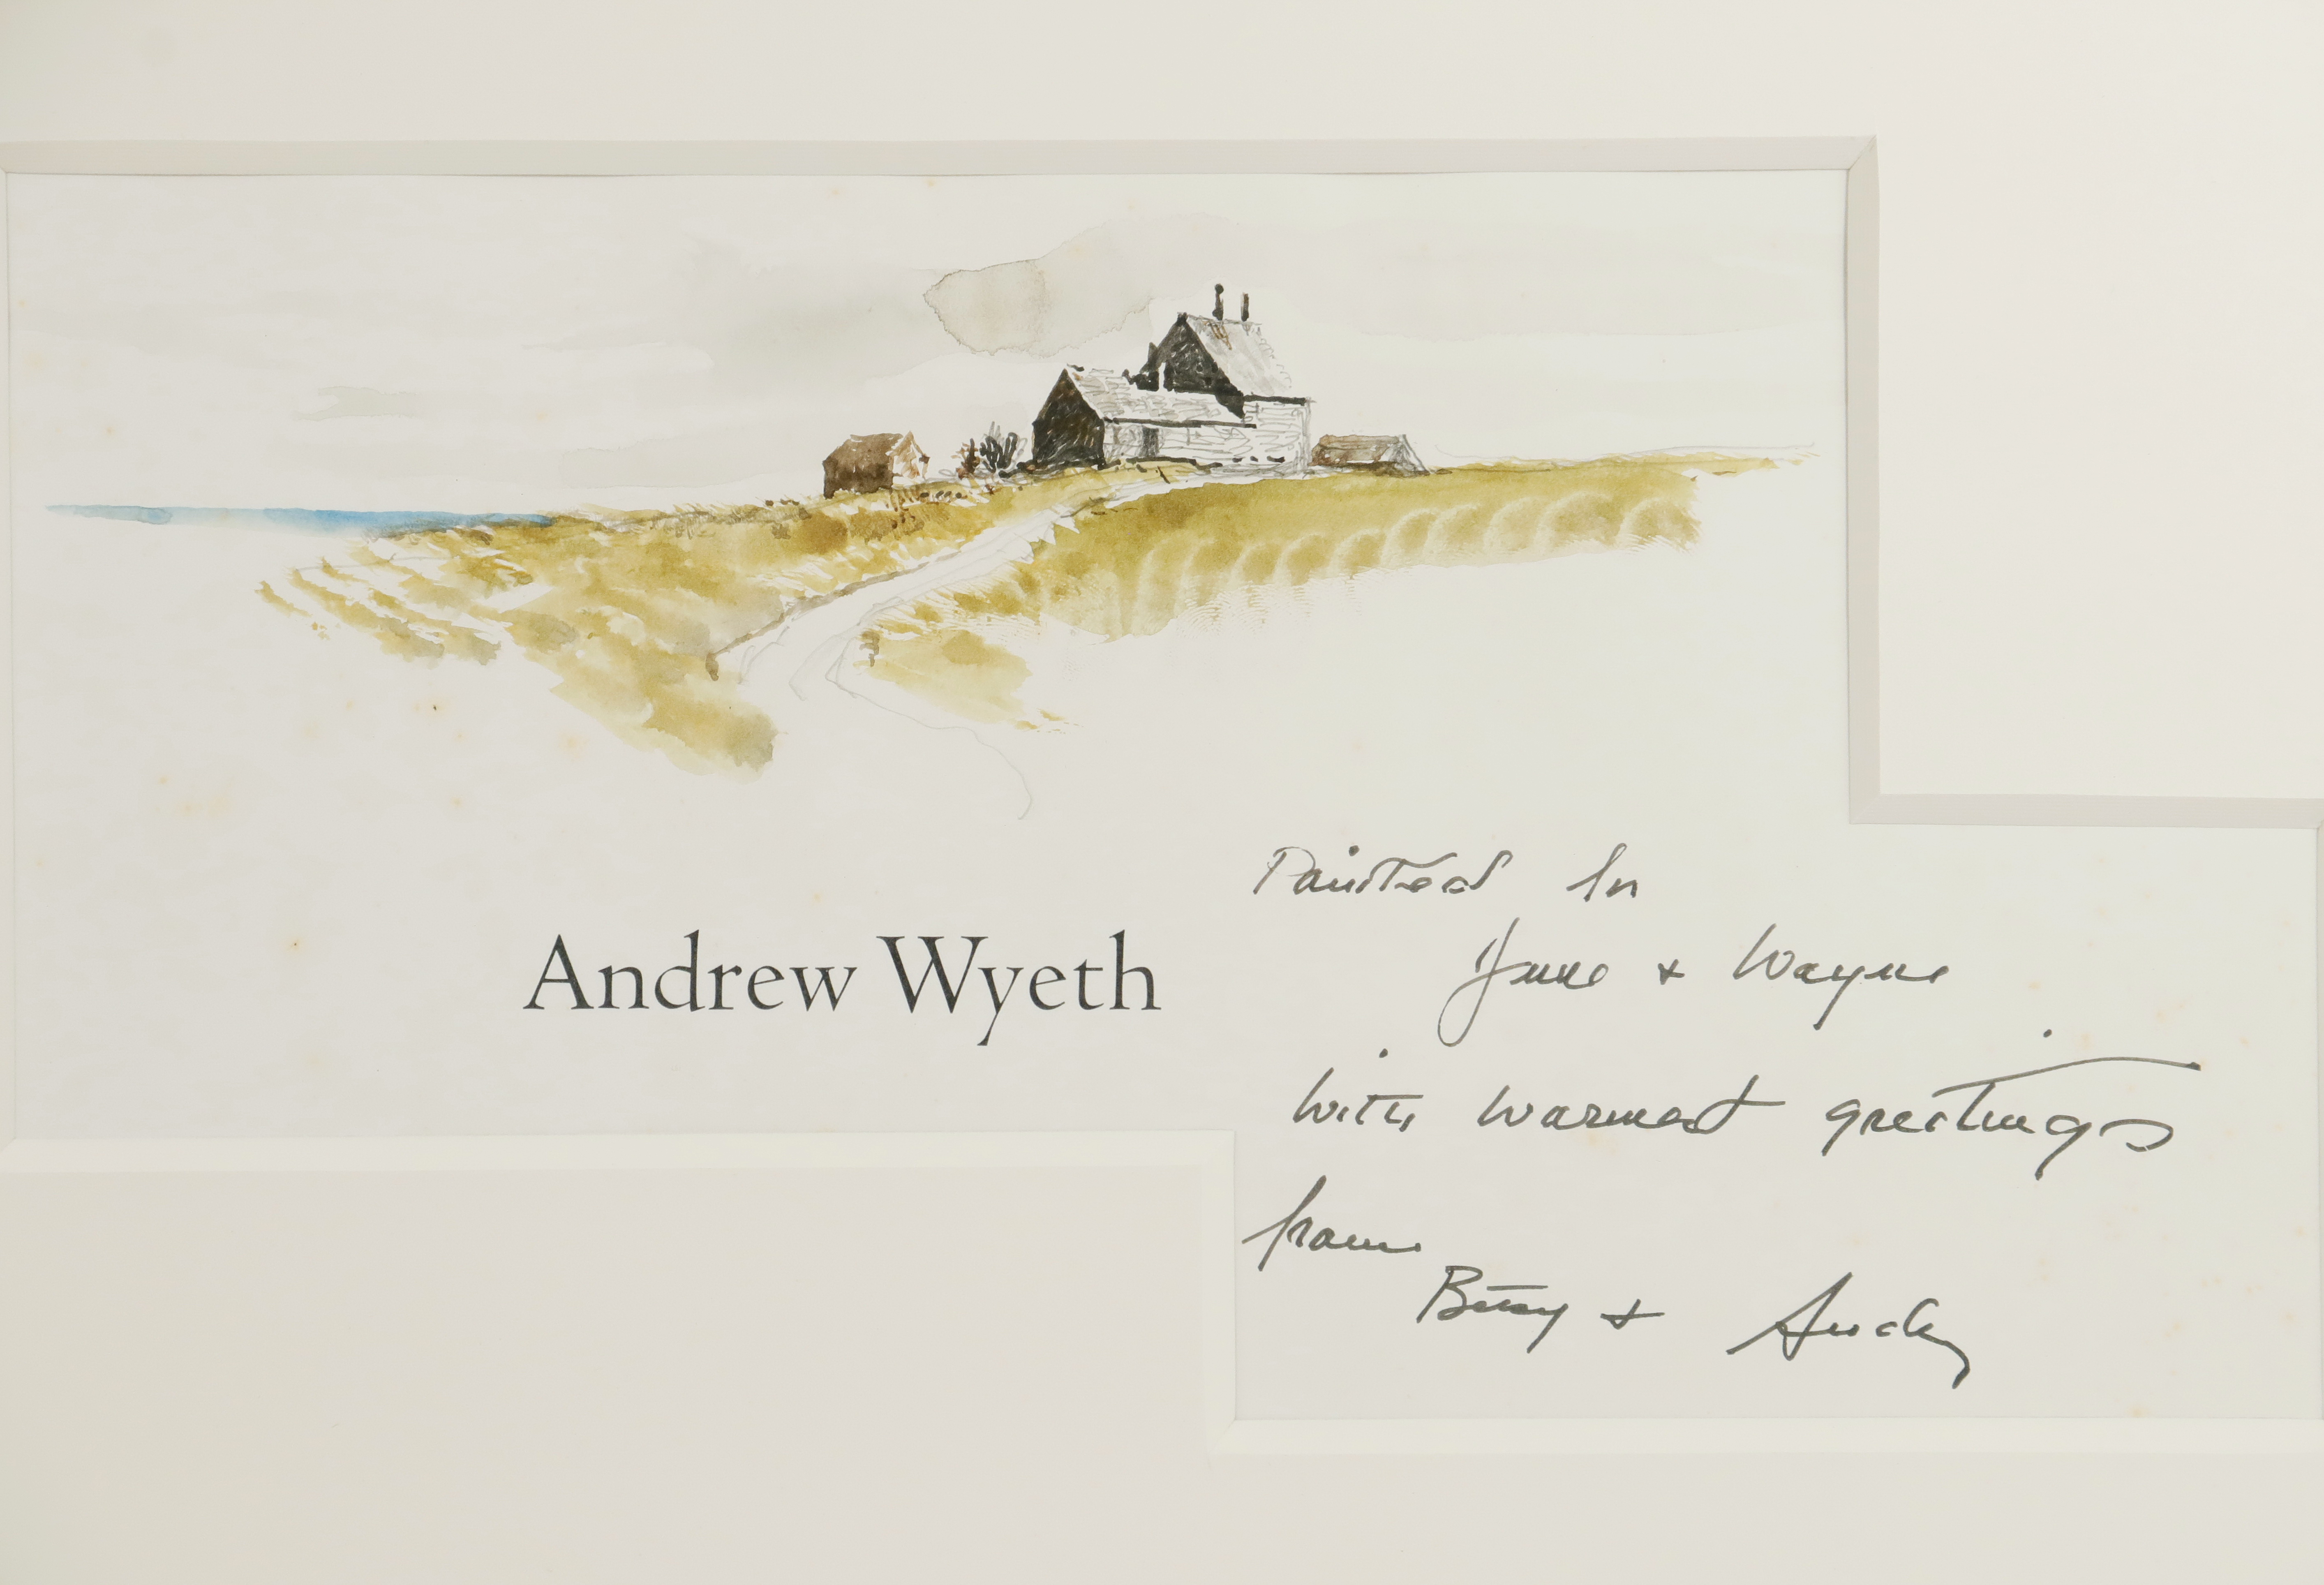 Andrew Wyeth
Painted in
June + Wayne
With warmest greetings
from
Betsy + Andy